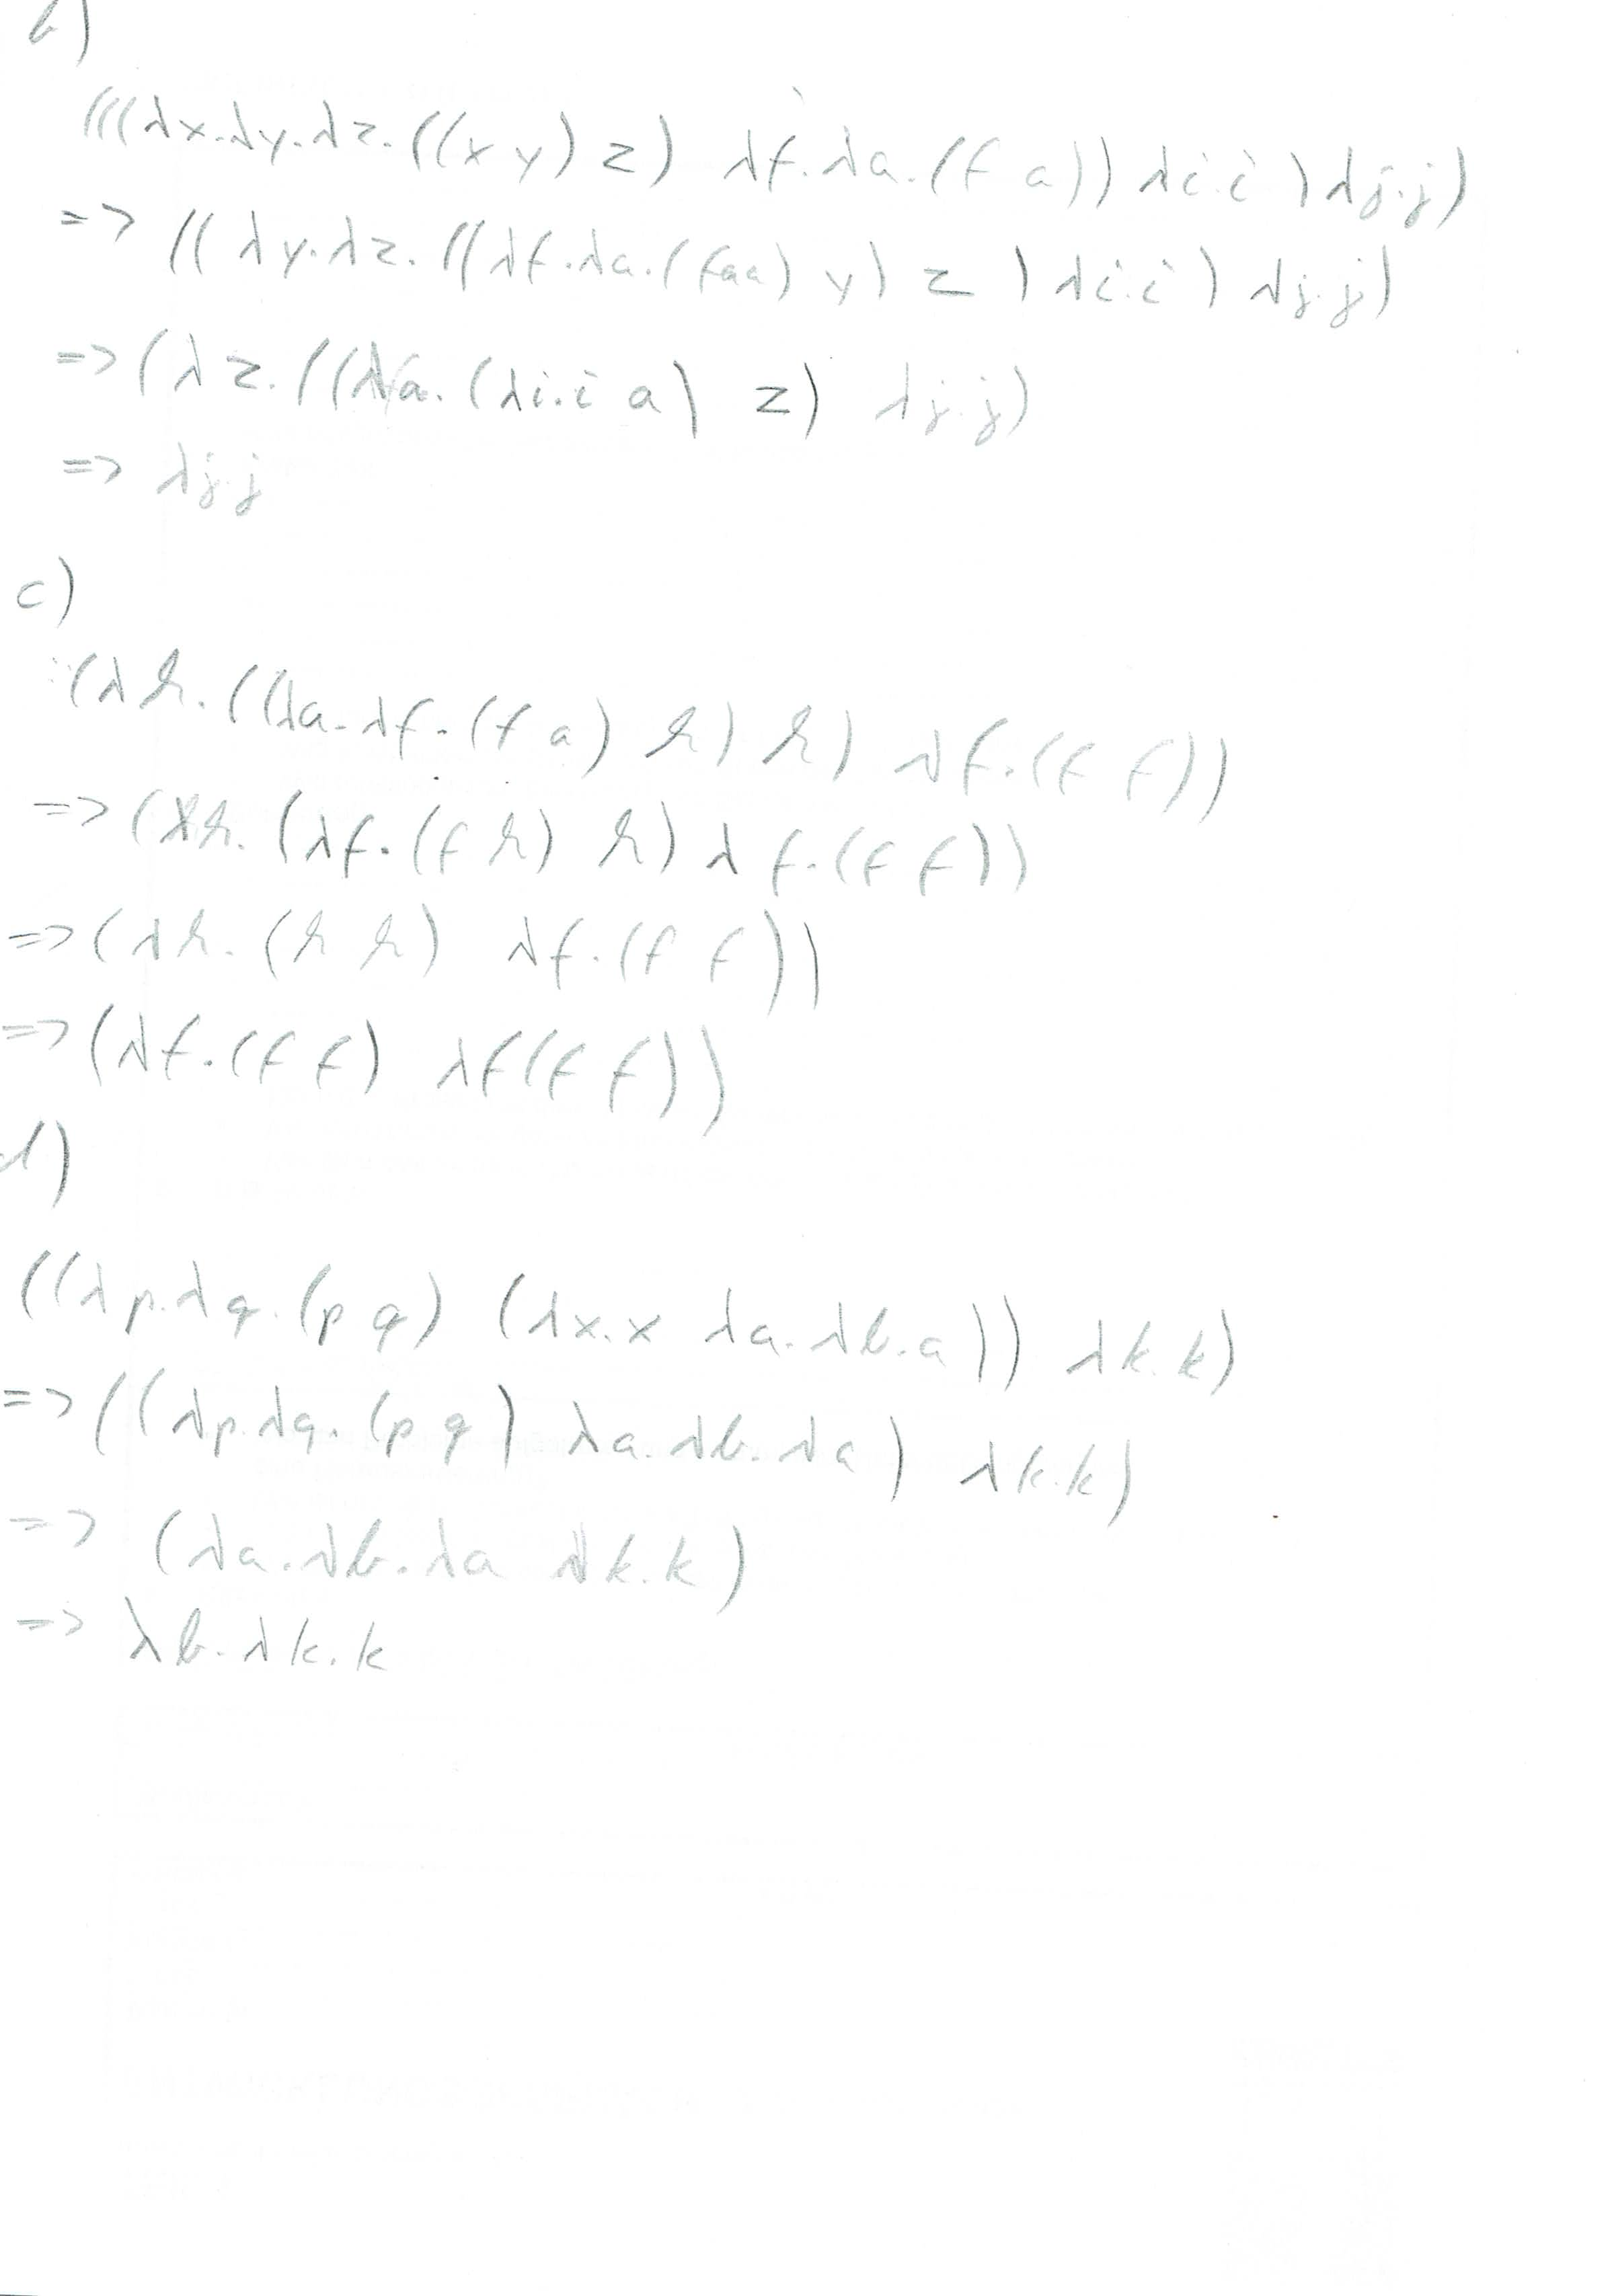 b)
(((λx.λy.λz.((x y) z) λf.λa.(f a)) λi.i ) λj.j)
=> (( λy.λz.((λf.λa.(faa) y) z ) λi.i ) λj.j)
=> (λz.((λa.(λi.i a) z) λj.j)
=> λj.j
c)
(λh.((λa.λf.(f a) h) h) λf.(f f))
=> (λh.(λf.(f h) h) λf.(f f))
=> (λh.(h h) λf.(f f))
=> (λf.(f f) λf(f f))
d)
((λp.λq.(p q) (λx.x λa.λb.a)) λk.k)
=> ((λp.λq.(p q) λa.λb.λa) λk.k)
=> (λa.λb.λa λk.k)
=> λb.λk.k